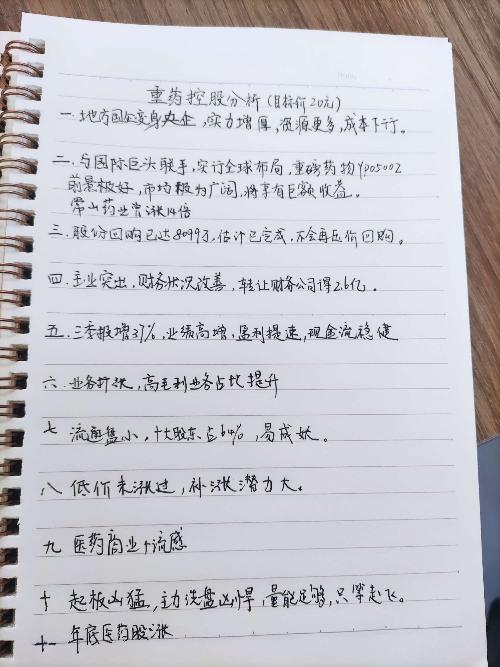 重药控股分析(目标价20元)
一.地方国企变身央企,实力增厚,资源更多,成本下行。
二.与国际巨头联手,实行全球布局,重磅药物YP05002
前景极好,市场极为广阔,将享有巨额收益。
常山药业曾涨14倍
三.股份回购已达8099万,估计已完成,不会再压价回购。
四.主业突出,财务状况改善,转让财务公司得2.6亿.
五.三季报增37%,业绩高增,盈利提速,现金流稳健
六.业务扩张,高毛利业务占比提升
七 流通盘小,十大股东占64%,易成妖。
八 低价未涨过,补涨潜力大。
九 医药商业+流感
十 起板凶猛,主力洗盘凶悍,量能足够,只等起飞。
十一 年底医药股涨